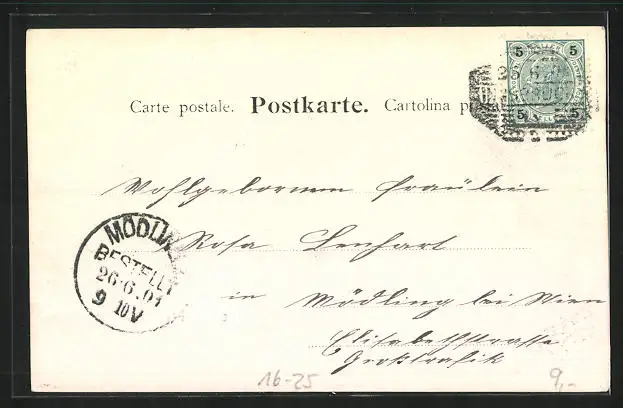 5 5
Carte postale. Postkarte. Cartolina
5 5
Wohlgebornen Fräulein
MÖDLIN
Rosa Lenhart
BESTELLT
26.6.01
9 10V
in Mödling bei Wien
Elisabethstrasse
Großtrafik
16-25
9,-